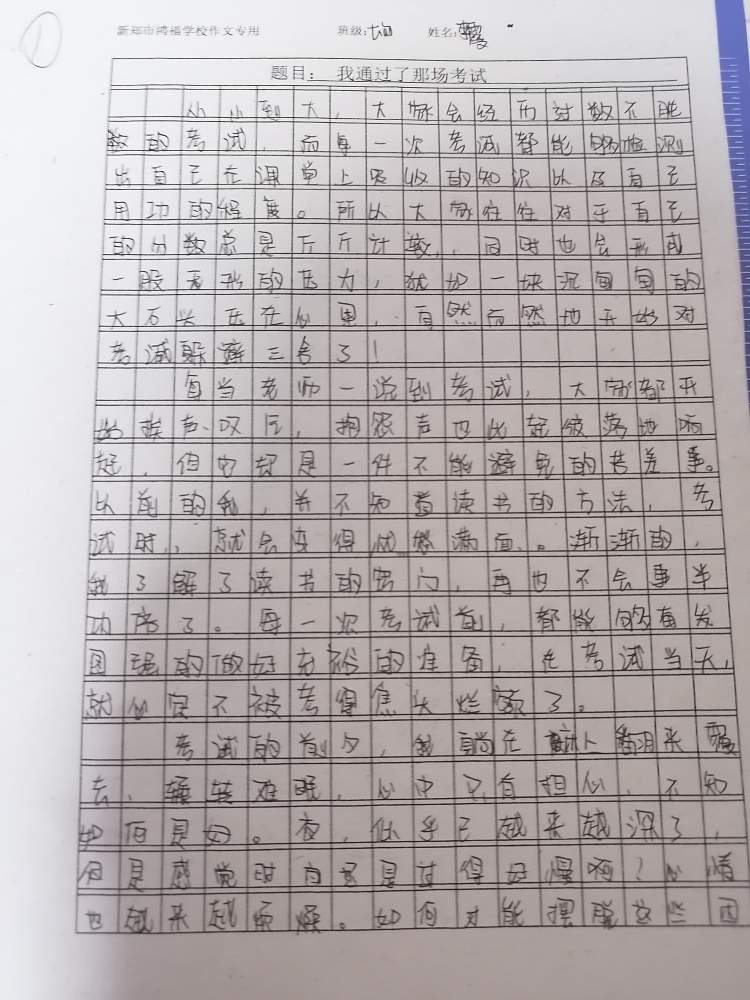 ①
新郑市鸿福学校作文专用 班级: 姓名:
题目: 我通过了那场考试
从小到大,大家会经历对数不胜
数的考试,而每一次考试都能够检测
出自己在课堂上吸收的知识以及自己
用功的程度。所以大家往往对于自己
的分数总是斤斤计较,同时也会形成
一股无形的压力,犹如一块沉甸甸的
大石头压在心里,自然而然地开始对
考试躲避三舍了!
每当老师一说到考试,大家都开
始挨声叹气,抱怨声也此起彼落地响
起,但它却是一件不能避免的苦差事。
以前的我,并不知道读书的方法,考
试时,就会变得忧愁满面。渐渐的,
我了解了读书的窍门,再也不会事半
功倍了。每一次考试前,都能够奋发
图强的做好充裕的准备,在考试当天,
就必定不被考得焦头烂额了。
考试的前夕,我躺在床上翻来覆
去,辗转难眠,心中只有担心,不知
如何是好。夜,似乎已越来越深了,
但是感觉时间还是过得好慢啊?心情
也越来越烦燥。如何才能摆脱这些困